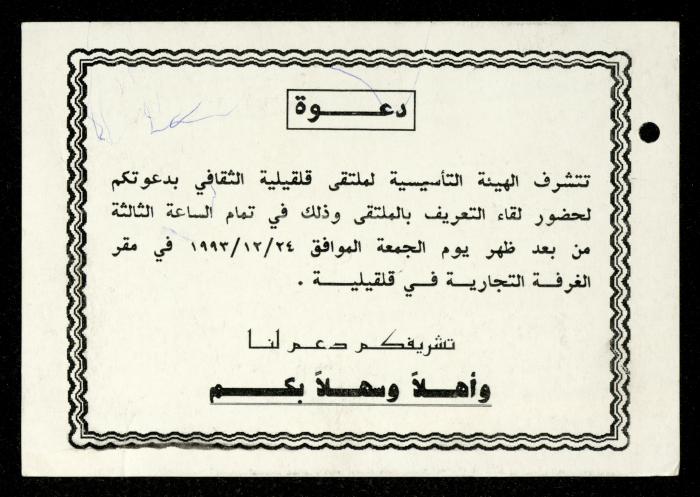 دعـــوة
تتشرف الهيئة التأسيسية لملتقى قلقيلية الثقافي بدعوتكم
لحضور لقاء التعريف بالملتقى وذلك في تمام الساعة الثالثة
من بعد ظهر يوم الجمعة الموافق ١٩٩٣/١٢/٢٤ في مقر
الغرفة التجارية في قلقيلية .
تشريفكم دعم لنا
وأهلاً وسهلاً بكم